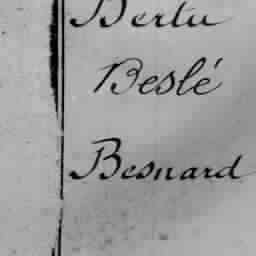 Bertu
Beslé
Besnard